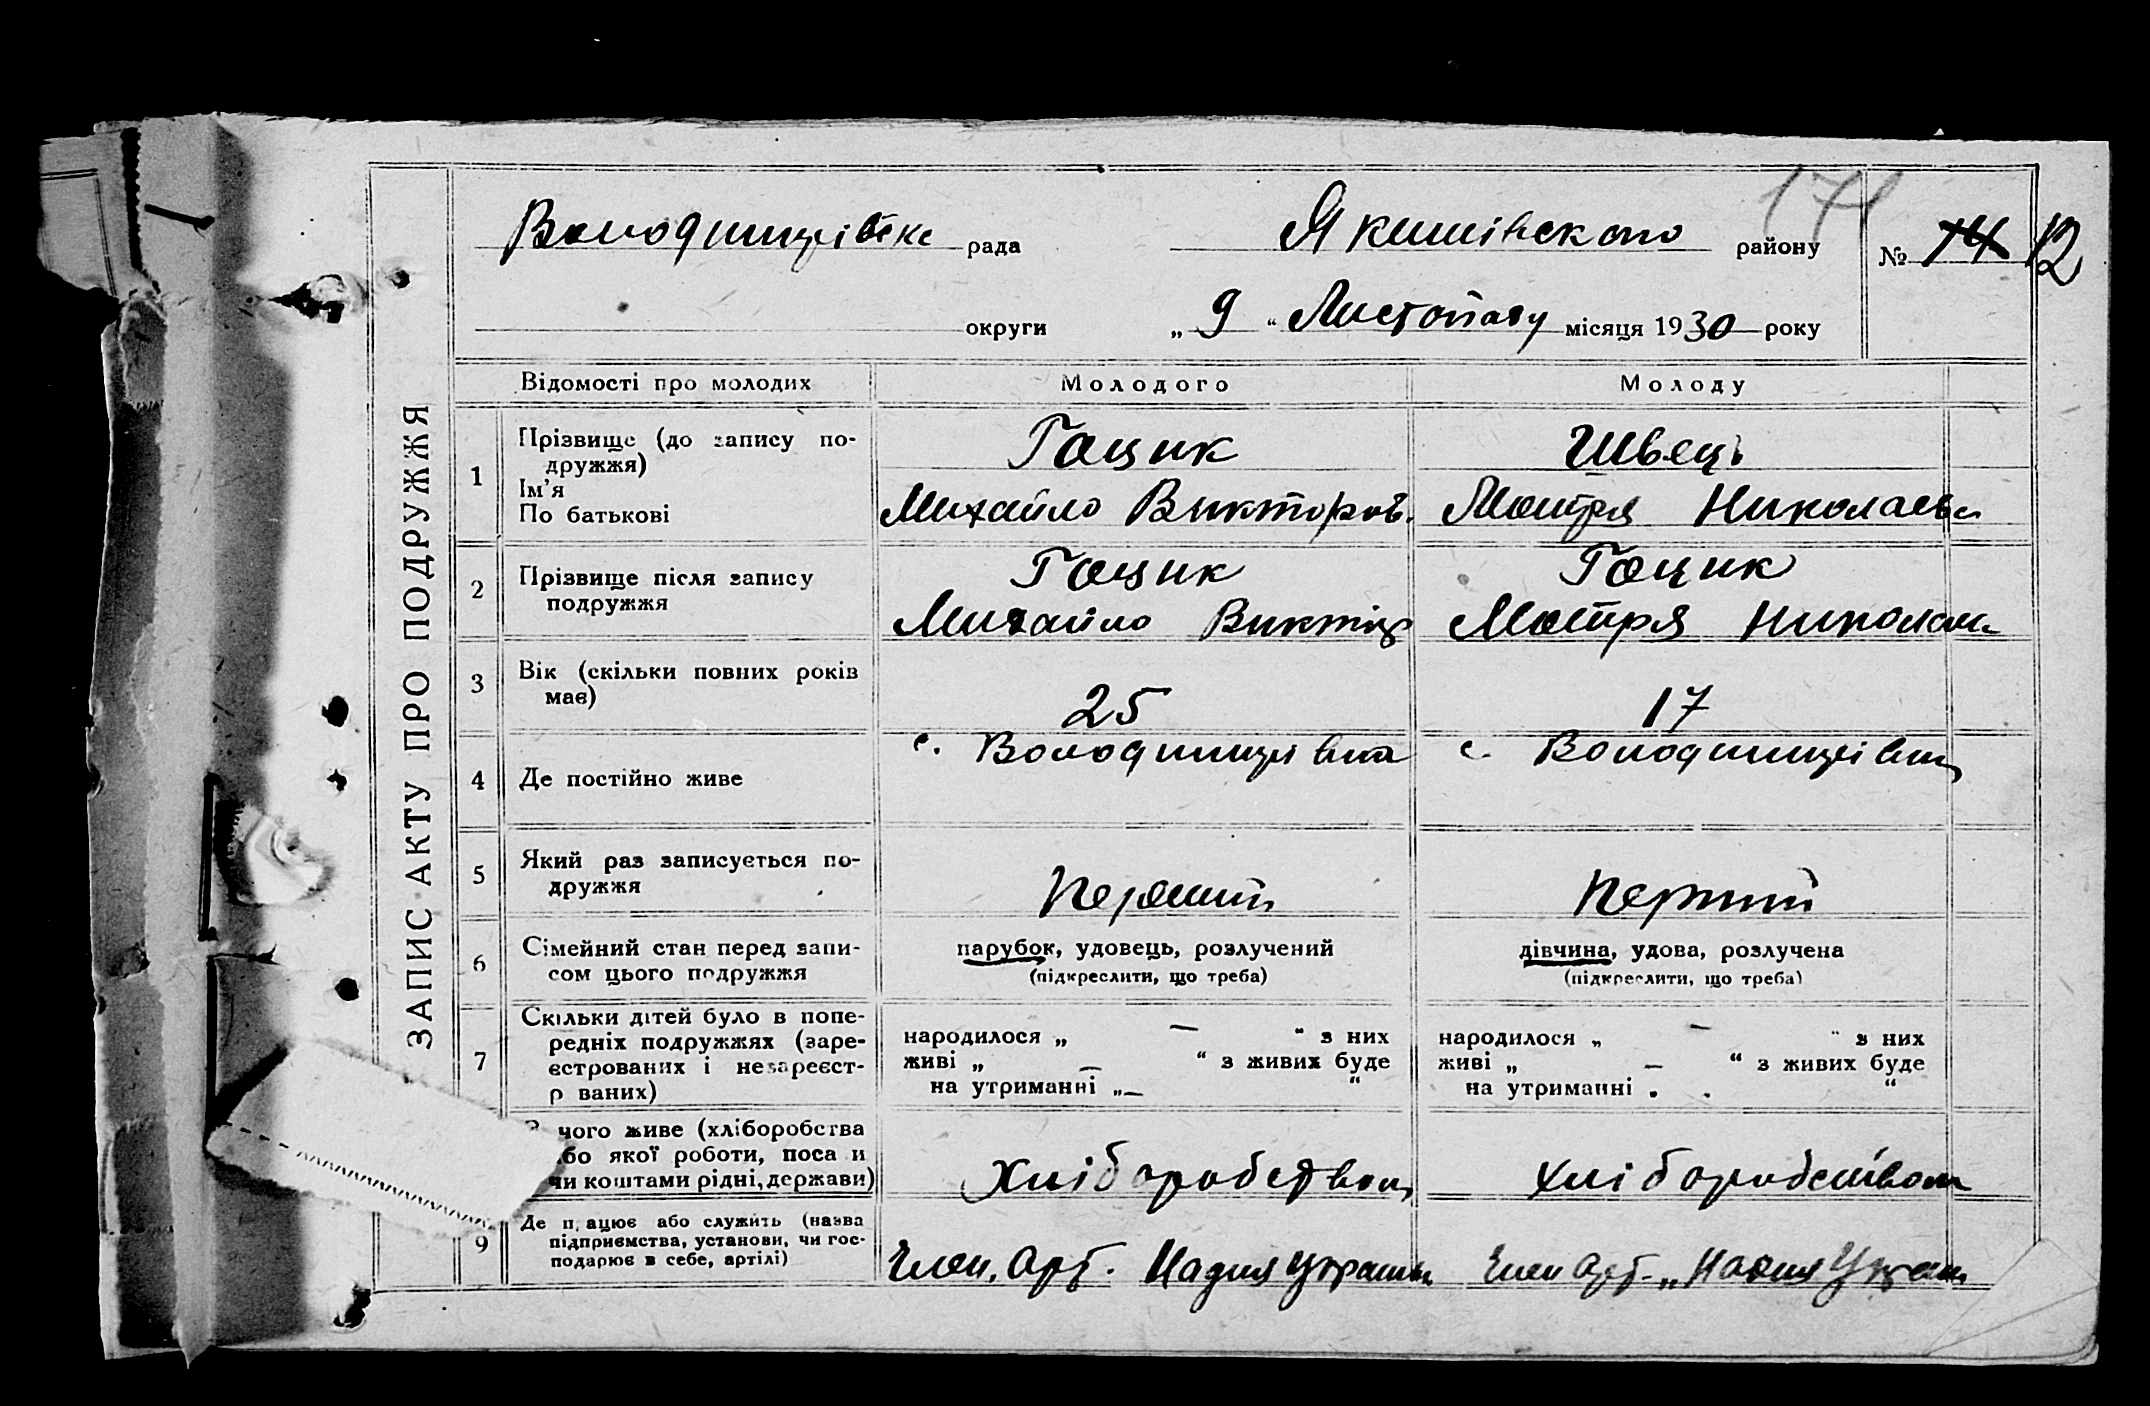 174
Володимирівська рада Якимівського району № 14 12
округи „ 9 “ Листопаду місяця 1930 року
ЗАПИС АКТУ ПРО ПОДРУЖЖЯ
Відомості про молодих Молодого Молоду
1 Прізвище (до запису по-
дружжя)
Ім’я
По батькові
Гацик Швець
Михайло Викторов. Мотря Николаевн
2 Прізвище після запису
подружжя
Гацик Гацик
Михайло Виктор Мотря Николаев
3 Вік (скільки повних років
має)
25 17
4 Де постійно живе
с. Володимирівка с. Володимирівка
5 Який раз записується по-
дружжя
Перший Перший
6 Сімейний стан перед запи-
сом цього подружжя
парубок, удовець, розлучений дівчина, удова, розлучена
(підкреслити, що треба) (підкреслити, що треба)
7 Скільки дітей було в попе-
редніх подружжях (заре-
єстрованих і незареєст-
р ваних)
народилося „ — “ з них народилося „ — “ з них
живі „ — “ з живих буде живі „ — “ з живих буде
на утриманні „ — “ на утриманні „ “
чого живе (хліборобства
бо якої роботи, поса и
чи коштами рідні, держави)
Хліборобством Хліборобством
9 Де п ацює або служить (назва
підприємства, установи, чи гос-
подарює в себе, артілі)
Член. Арт. Надия Украины Член Арт. „Надия Украин